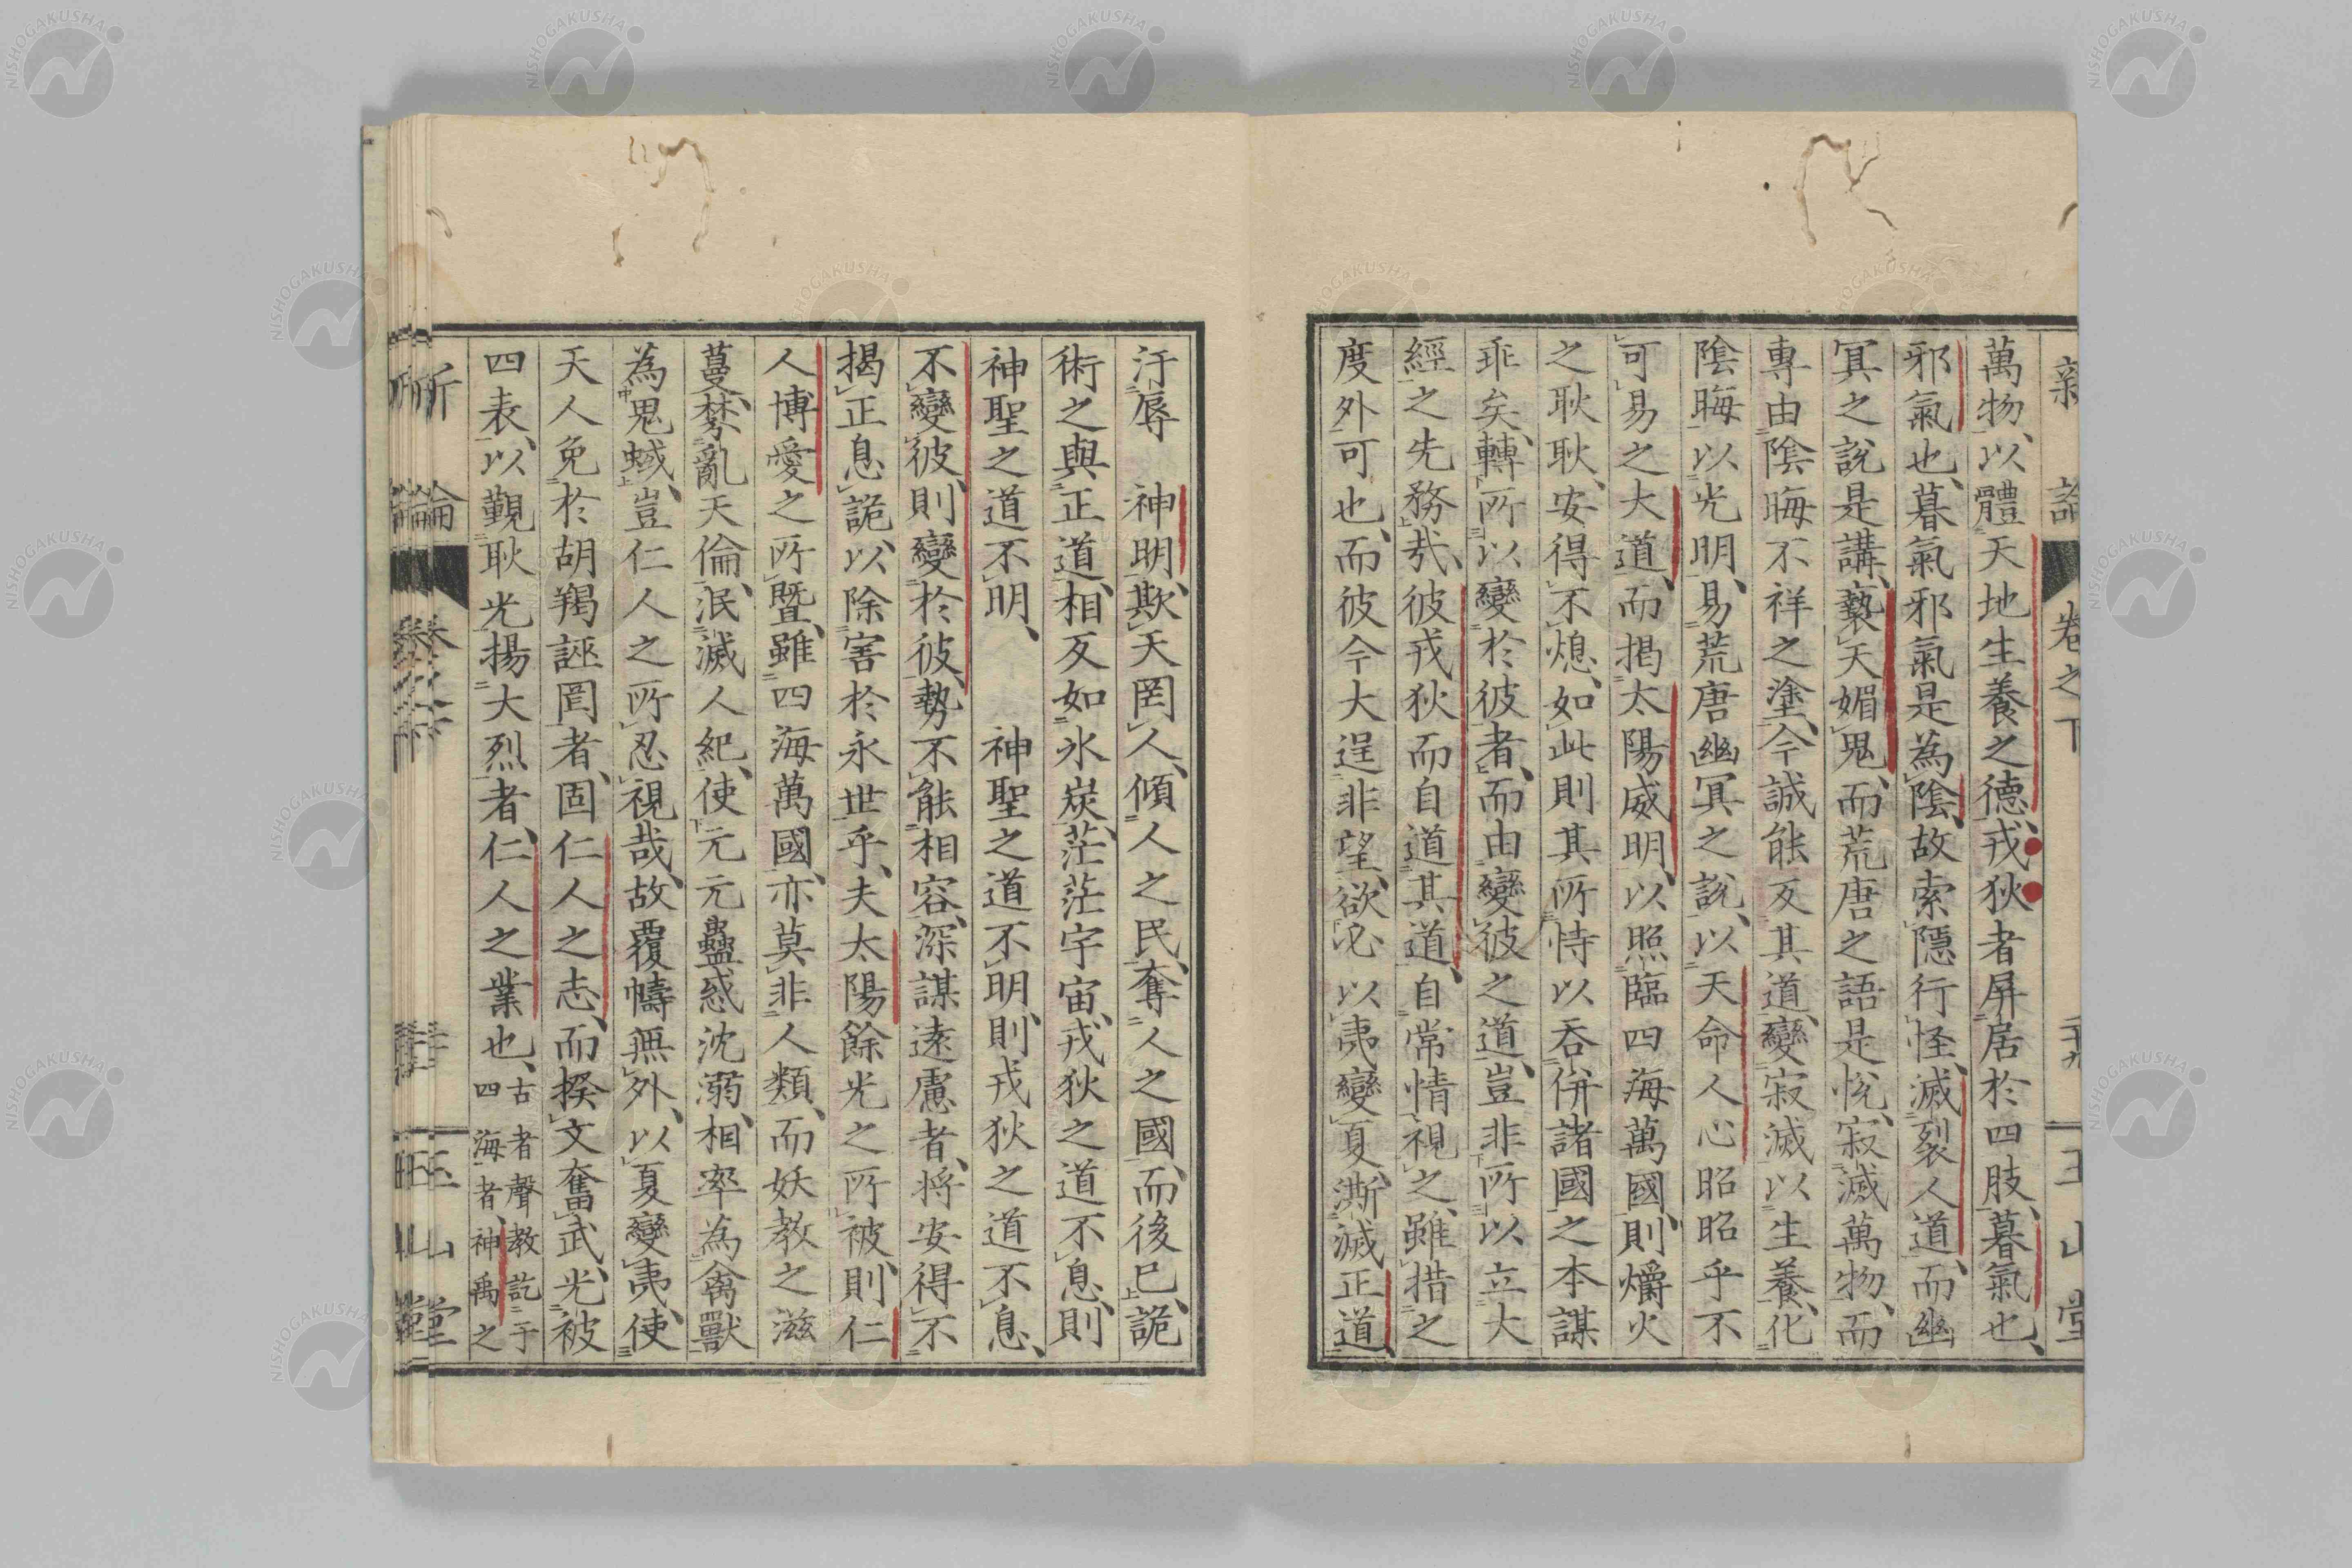 新論 卷之下 玉山堂
萬物、以體天地生養之德、戎狄者屏居於四肢、暮氣也、
邪氣也、暮氣邪氣是為陰、故索隱行怪、滅裂人道、而幽
冥之說是講、褻天媚鬼、而荒唐之語是悅、寂滅萬物、而
專由陰晦不祥之塗、今誠能反其道、變寂滅以生養、化
陰晦以光明、易荒唐幽冥之說、以天命人心昭昭乎不
可易之大道、而揭太陽威明、以照臨四海萬國、則爝火
之耿耿、安得不熄、如此則其所恃以吞併諸國之本謀
乖矣、轉所以變於彼者、而由變彼之道、豈非所以立大
經之先務哉、彼戎狄而自道其道、自常情視之、雖措之
度外可也、而彼今大逞非望、欲必以夷變夏、澌滅正道
汙辱 神明、欺天罔人、傾人之民、奪人之國、而後已、詭
術之與正道、相反如氷炭、茫茫宇宙、戎狄之道不息、則
神聖之道不明、 神聖之道不明、則戎狄之道不息、
不變彼、則變於彼、勢不能相容、深謀遠慮者、將安得不
揭正息詭、以除害於永世乎、夫太陽餘光之所被、則仁
人博愛之所暨、雖四海萬國、亦莫非人類、而妖教之滋
蔓、棼亂天倫、泯滅人紀、使元元蠱惑沈溺、相率為禽獸
為鬼蜮、豈仁人之所忍視哉、故覆幬無外、以夏變夷、使
天人免於胡羯誣罔者、固仁人之志、而揆文奮武、光被
四表、以觀耿光揚大烈者、仁人之業也、古者聲教訖于
四海者、神禹之
論 玉山堂
NISHOGAKUSHA